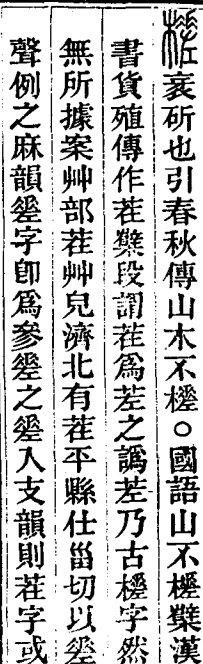 槎衺斫也引春秋傳山木不槎○國語山不槎櫱漢
書貨殖傳作茬櫱段謂茬爲差之譌差乃古槎字然
無所據案艸部茬艸皃濟北有茬平縣仕甾切以差
聲例之麻韻差字卽爲參差之差入支韻則茬字或